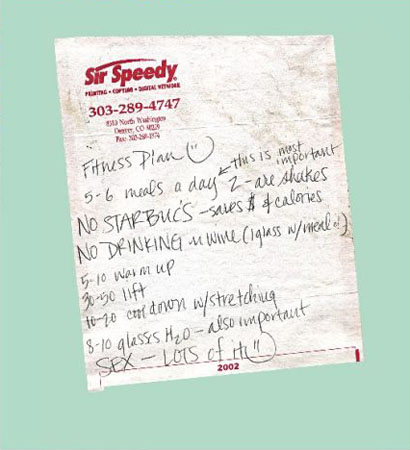 Sir Speedy
PRINTING • COPYING • DIGITAL NETWORK
303-289-4747
North Washington
Denver, CO 80229
Fax: 303-288-1974
Fitness Plan
this is most
important
5-6 meals a day 2 - are shakes
NO STARBUC'S - saves $ & calories
NO DRINKING - wine (1 glass w/ meal)
5-10 warm up
30-50 lift
10-20 cool down w/ stretching
8-10 glasses H₂O - also important
SEX - LOTS of it
2002